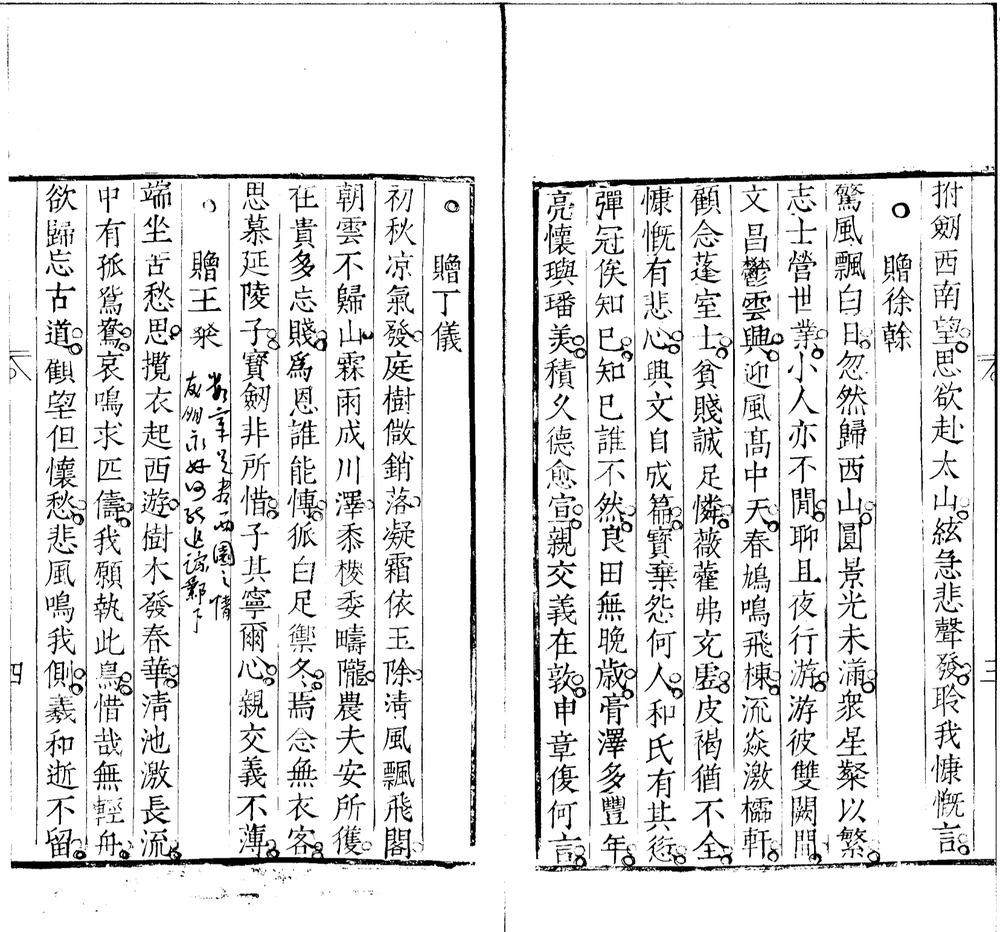 拊劒西南望思欲赴太山絃急悲聲發聆我慷慨言
贈徐幹
驚風飄白日忽然歸西山圓景光未滿衆星粲以繁
志士營世業小人亦不閒聊且夜行游游彼雙闕間
文昌鬱雲興迎風髙中天春鳩鳴飛棟流猋激櫺軒
顧念蓬室士貧賤誠足憐薇藿弗充虛皮褐猶不全
慷慨有悲心興文自成篇寶棄怨何人和氏有其愆
彈冠俟知已知已誰不然良田無晚歲膏澤多豐年
亮懷璵璠美積久德愈宣親交義在敦申章復何言
贈丁儀
初秋凉氣發庭樹微銷落凝霜依玉除淸風飄飛閣
朝雲不歸山霖雨成川澤黍稷委疇隴農夫安所獲
在貴多忘賤爲恩誰能愽狐白足禦冬焉念無衣客
思慕延陵子寶劒非所惜子其寧爾心親交義不薄
贈王粲
端坐苦愁思攬衣起西遊樹木發春華淸池激長流
中有孤鴛鴦哀鳴求匹儔我願執此鳥惜哉無輕舟
欲歸忘古道顧望但懷愁悲風鳴我側羲和逝不留
三
四